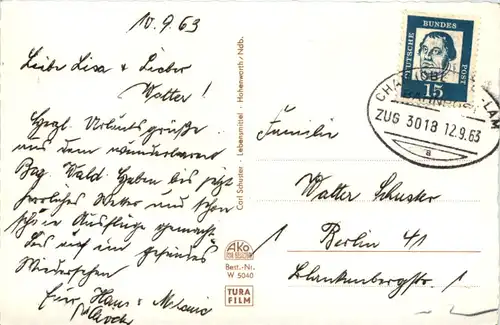 10.9.63
Liebe Lisa & Lieber
Walter!
Herzl. Urlaubsgrüße
aus dem wunderbaren
Bay. Wald. Haben bis jetzt
herrliches Wetter und schon
schöne Ausflüge gemacht.
Bis auf ein gesundes
Wiedersehen
Eure Hans & Melanie
Carl Schuster - Lebensmittel - Hohenwarth/Ndb.
AKO
Best.-Nr.
W 5040
TURA
FILM
DEUTSCHE BUNDES POST
15
CHAM
-LAM
ZUG 3018 12.9.63
a
Familie
Walter Schuster
1 Berlin 41
Blankenbergstr 1